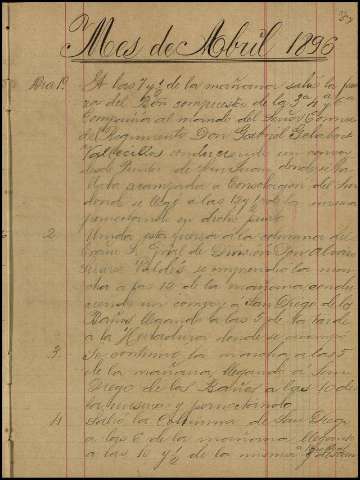 Mes de Abril 1896
Dia 1º A las 7 y ½ de la mañana salió la fuer
za del Bón compuesta de las 3ª 4ª y 6ª
Compañia al mando del Señor
del Regimiento Don Gabriel
Vallecillos conduciendo un convoy
desde de San Juan donde se ha
llaba acampada a Consolación del Sur
donde se llegó a las 12 y ½ de la misma
pernoctando en dicho punto
2 Unida esta fuerza a la columna del
Exmo S. Gral de Division Don Alvaro
Suarez Valdés, se emprendio la mar
cha a las 12 de la mañana condu
ciendo un convoy a San Diego de los
Baños llegando a las 5 de la tarde
a la Herradura donde se acampó
3 Se continuó la marcha a las 5
de la mañana llegando a San
Diego de los Baños a las 10 de
la misma y pernoctando
4 Salió la Columna de San Diego
a las 6 de la mañana llegando
a las 10 y ½ de la misma